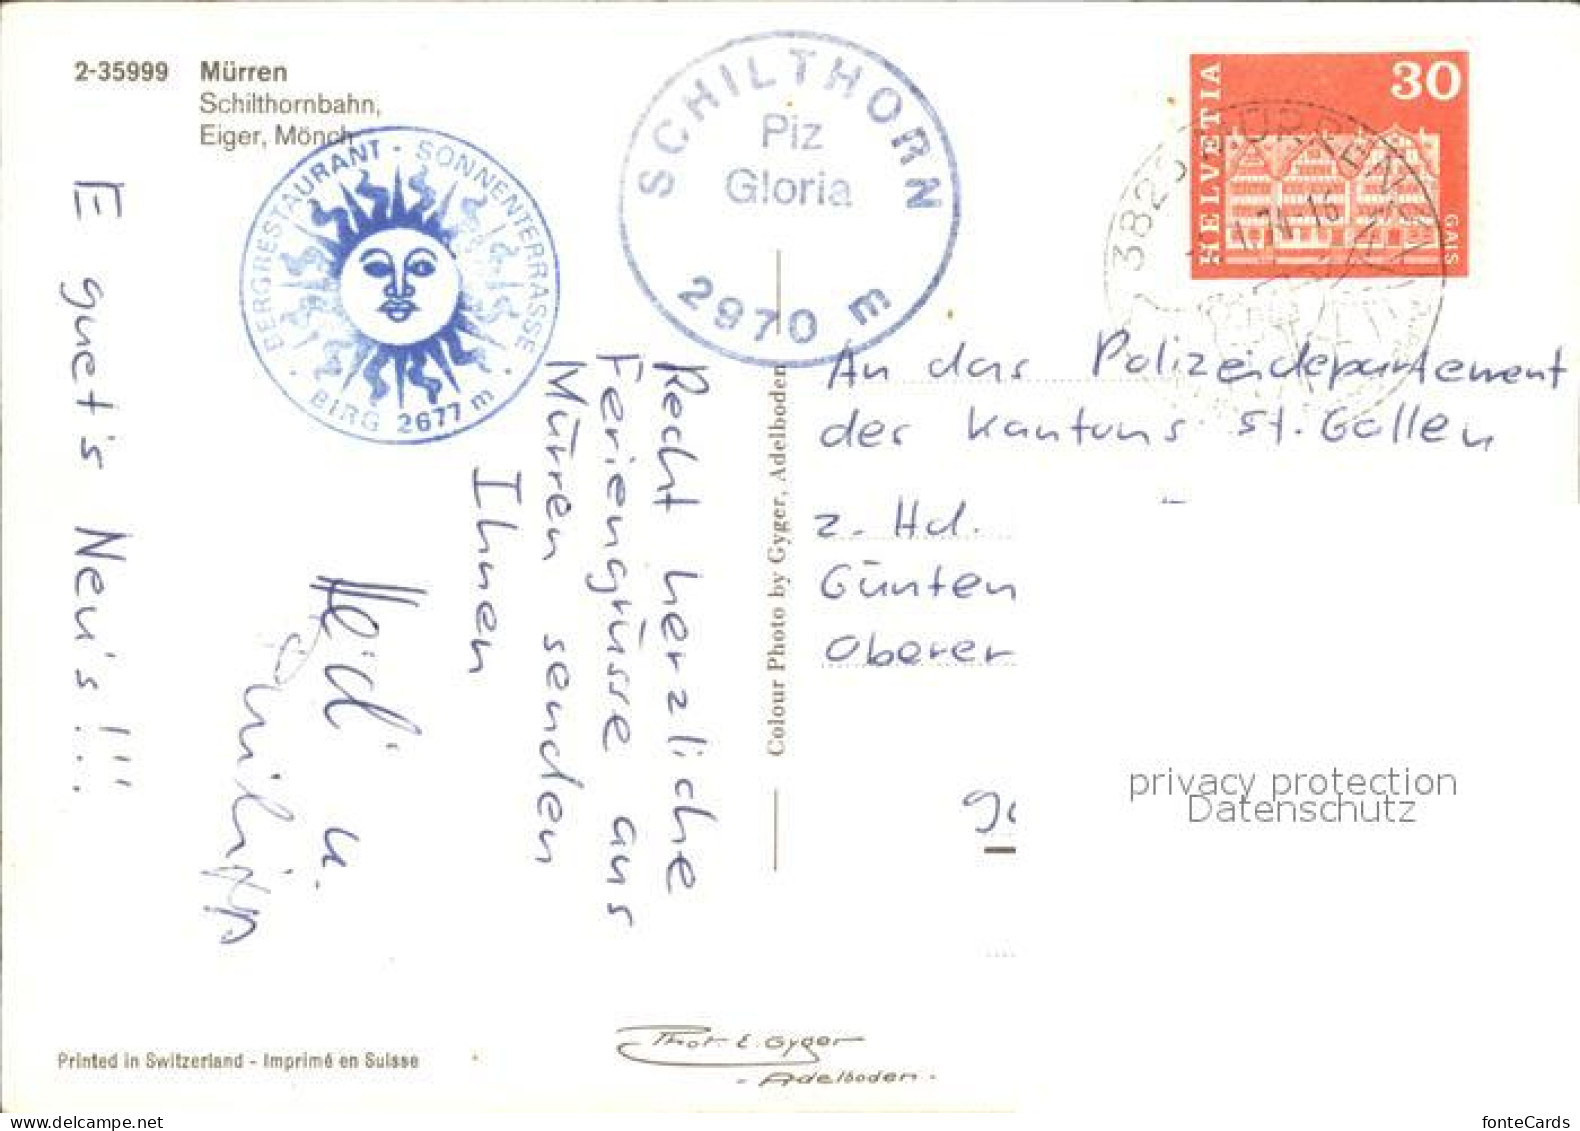 2-35999 Mürren
Schilthornbahn,
Eiger, Mönch
BERGRESTAURANT - SONNENTERRASSE
BIRG 2677 m
SCHILTHORN
Piz
Gloria
2970 m
HELVETIA
30
GAIS
3825 MÜRREN
E guet's Neu's!!!
Recht herzliche
Feriengrüsse aus
Mürren senden
Ihnen
Heidi u.
Colour Photo by Gyger, Adelboden
An das Polizeidepartement
des Kantons St. Gallen
z. Hd.
Günten
Oberer
privacy protection
Datenschutz
Printed in Switzerland - Imprimé en Suisse
Phot. E. Gyger
- Adelboden -
fonteCards